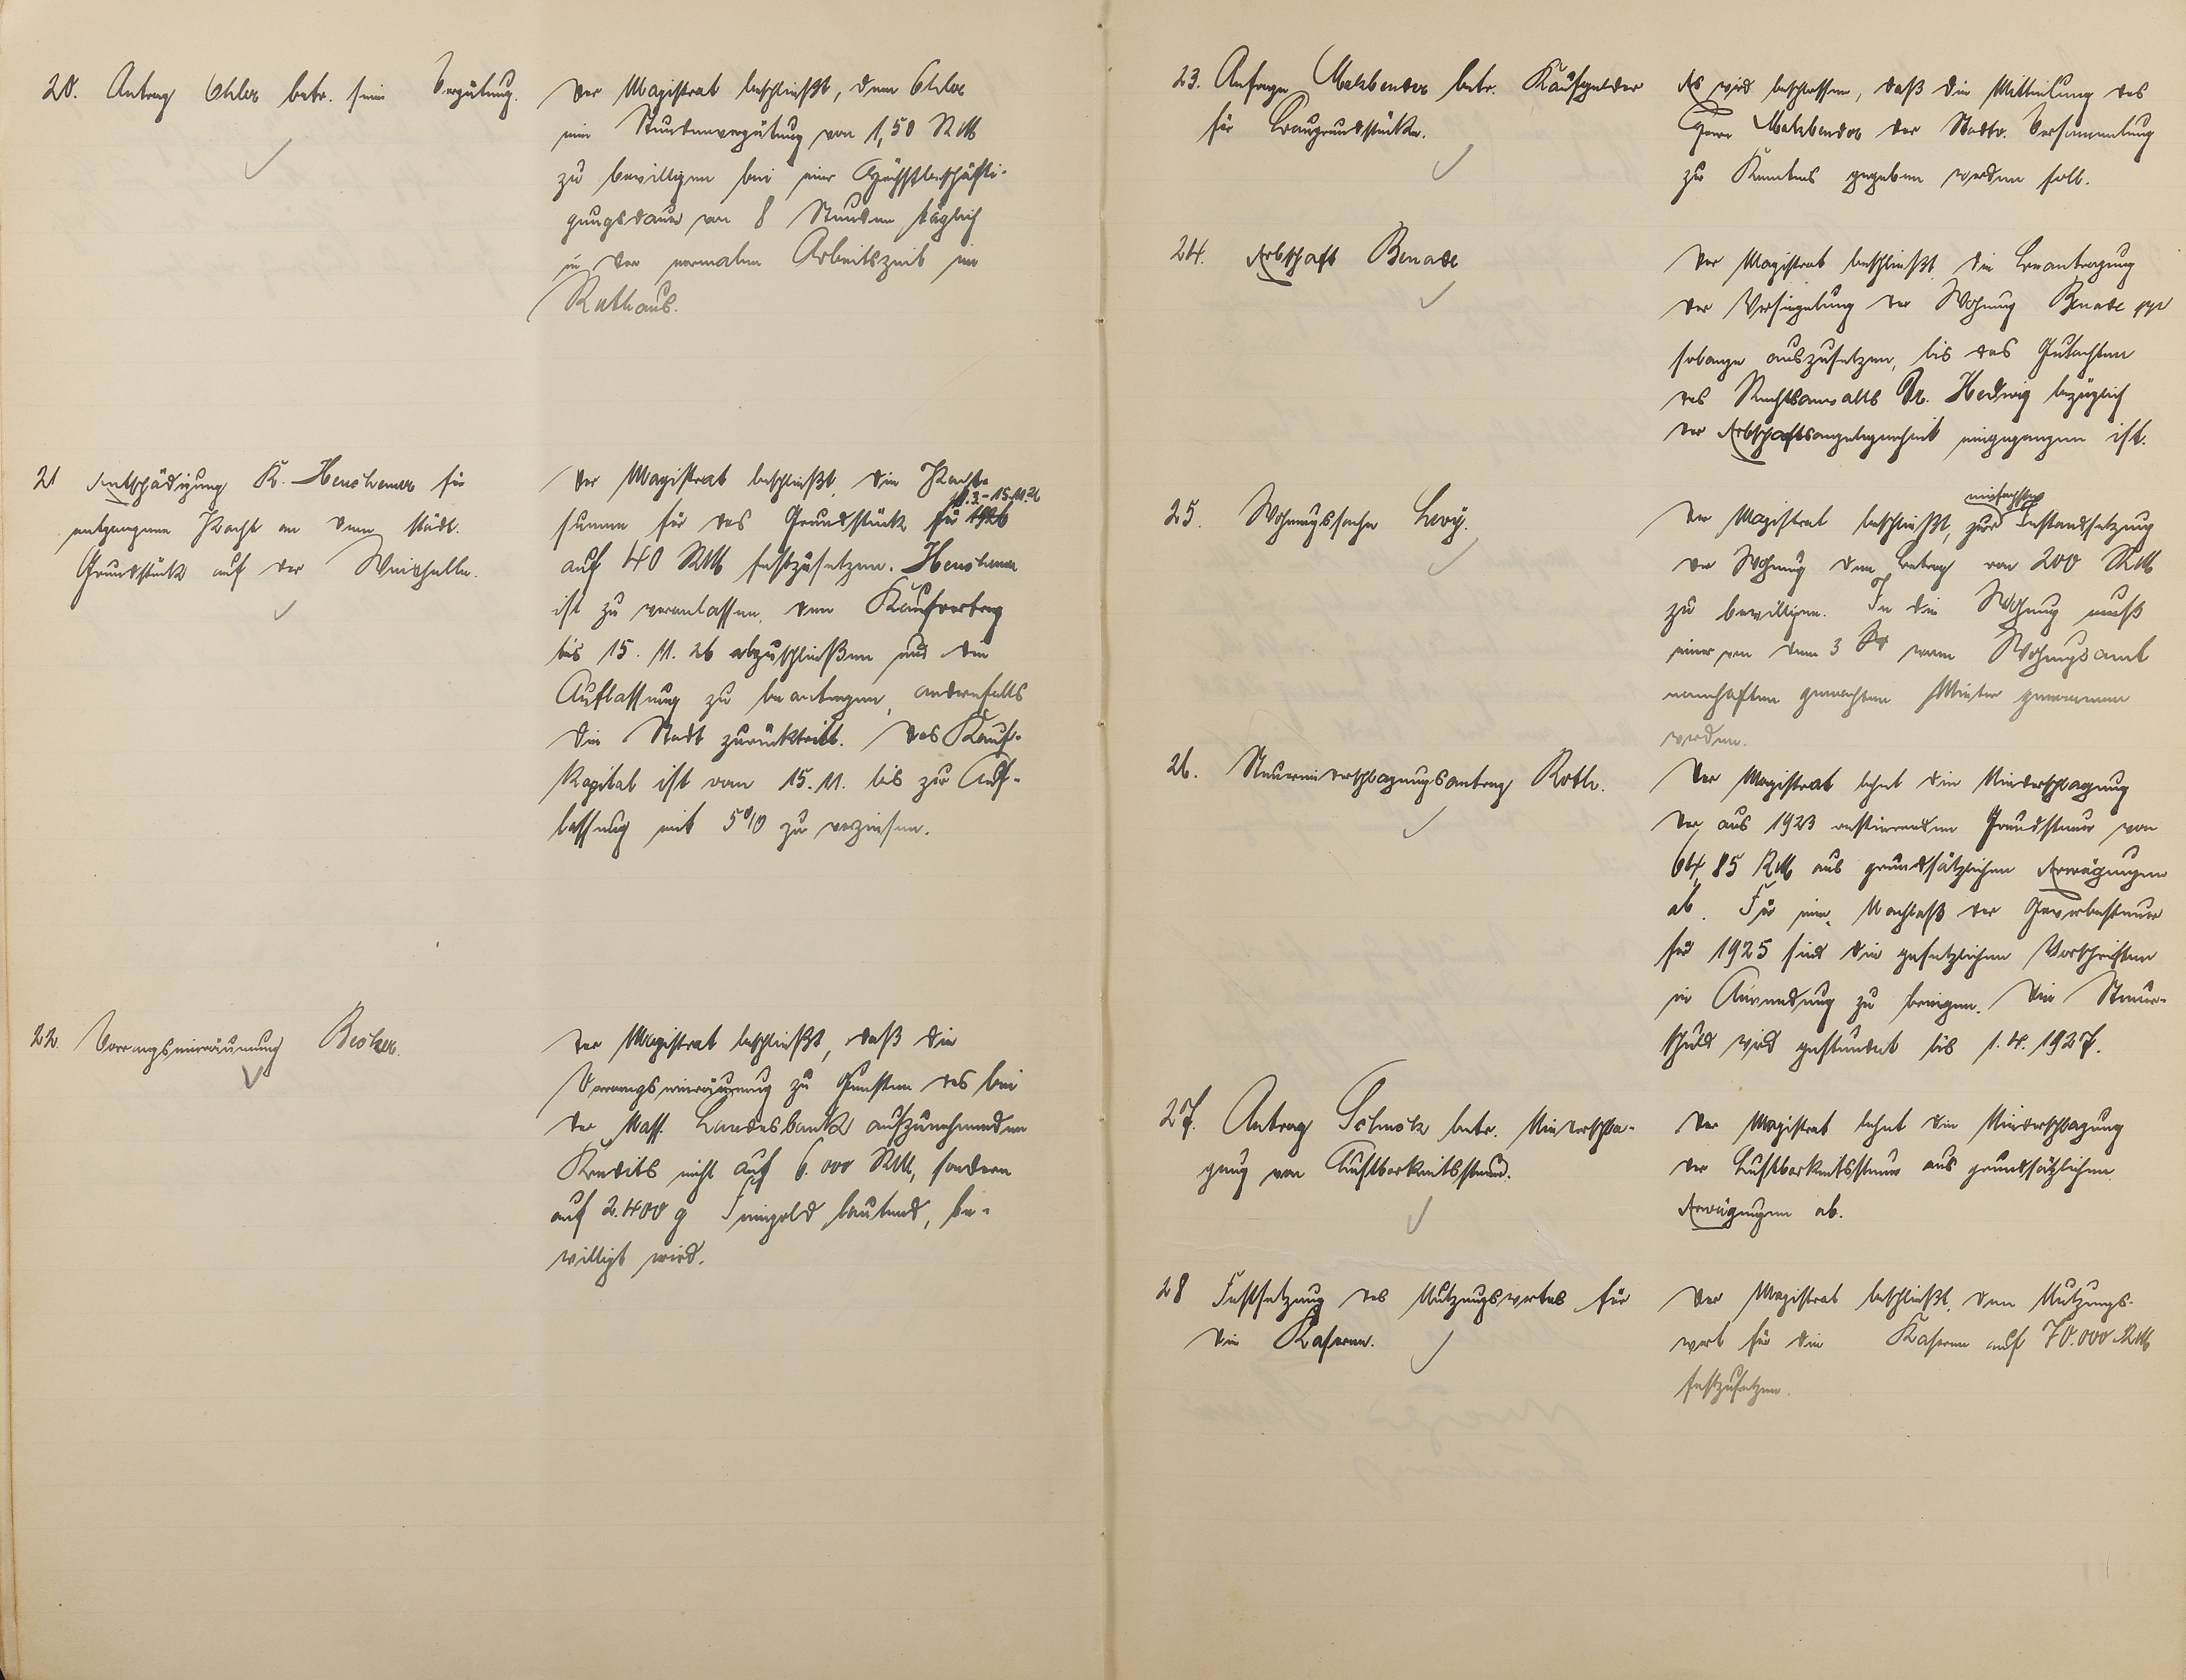 20. Antrag Ohler betr. seine Vergütung.
Der Magistrat beschließt, dem Ohler
eine Stundenvergütung von 1,50 RM
zu bewilligen bei einer Höchstbeschäfti-
gungsdauer von 8 Stunden täglich
in der normalen Arbeitszeit im
Rathaus.
21 Entschädigung K. Heushemer für
entgangene Pacht an dem städt.
Grundstück auf der
Der Magistrat beschließt, die Pacht-
summe für das Grundstück für 1926
1.3.-15.11.26
auf 40 RM festzusetzen. Heushemer
ist zu veranlassen, den Kaufvertrag
bis 15. 11. 26 abzuschließen und die
Auflassung zu beantragen, andernfalls
die Stadt zurücktritt. Das Kauf-
kapital ist vom 15. 11. bis zur Auf-
lassung mit 5% zu verzinsen.
22. Vorrangseinräumung Becker.
Der Magistrat beschließt, daß die
Vorrangseinräumung zu Gunsten des bei
der Nass. Landesbank aufzunehmenden
Kredits nicht auf 6.000 RM, sondern
auf 2.400 g Feingold lautend, be-
willigt wird.
23. Anfrage Malzbender betr. Kaufgelder
für Baugrundstücke.
Es wird beschlossen, daß die Mitteilung des
Herrn Malzbender der Stadtv. Versammlung
zur Kenntnis gegeben werden soll.
24. Erbschaft Benade
Der Magistrat beschließt, die Beantragung
der Versiegelung der Wohnung Benade
solange auszusetzen, bis das Gutachten
des Rechtsanwalts Dr. Hedwig bezüglich
der Erbschaftsangelegenheit eingegangen ist.
25. Wohnungssache Levy.
einfachen
Der Magistrat beschließt, zur Instandsetzung
der Wohnung den Betrag von 200 RM
zu bewilligen. In die Wohnung muß
einer von den 3 vom Wohnungsamt
namhaften gemachten Mieter genommen
werden.
26. Steuerniederschlagungsantrag Roth.
Der Magistrat lehnt die Niederschlagung
der aus 1923 restierenden Grundsteuer von
64,85 RM aus grundsätzlichen Erwägungen
ab. Für einen Nachlaß der Gewerbesteuer
für 1925 sind die gesetzlichen Vorschriften
in Anwendung zu bringen. Die Steuer-
schuld wird gestundet bis 1. 4. 1927.
27. Antrag Schuck betr. Niederschla-
gung von Lustbarkeitssteuer.
Der Magistrat lehnt die Niederschlagung
der Lustbarkeitssteuer aus grundsätzlichen
Erwägungen ab.
28 Festsetzung des Nutzungswertes für
die Kaserne.
Der Magistrat beschließt, den Nutzungs-
wert für die Kaserne auf 70.000 RM
festzusetzen.